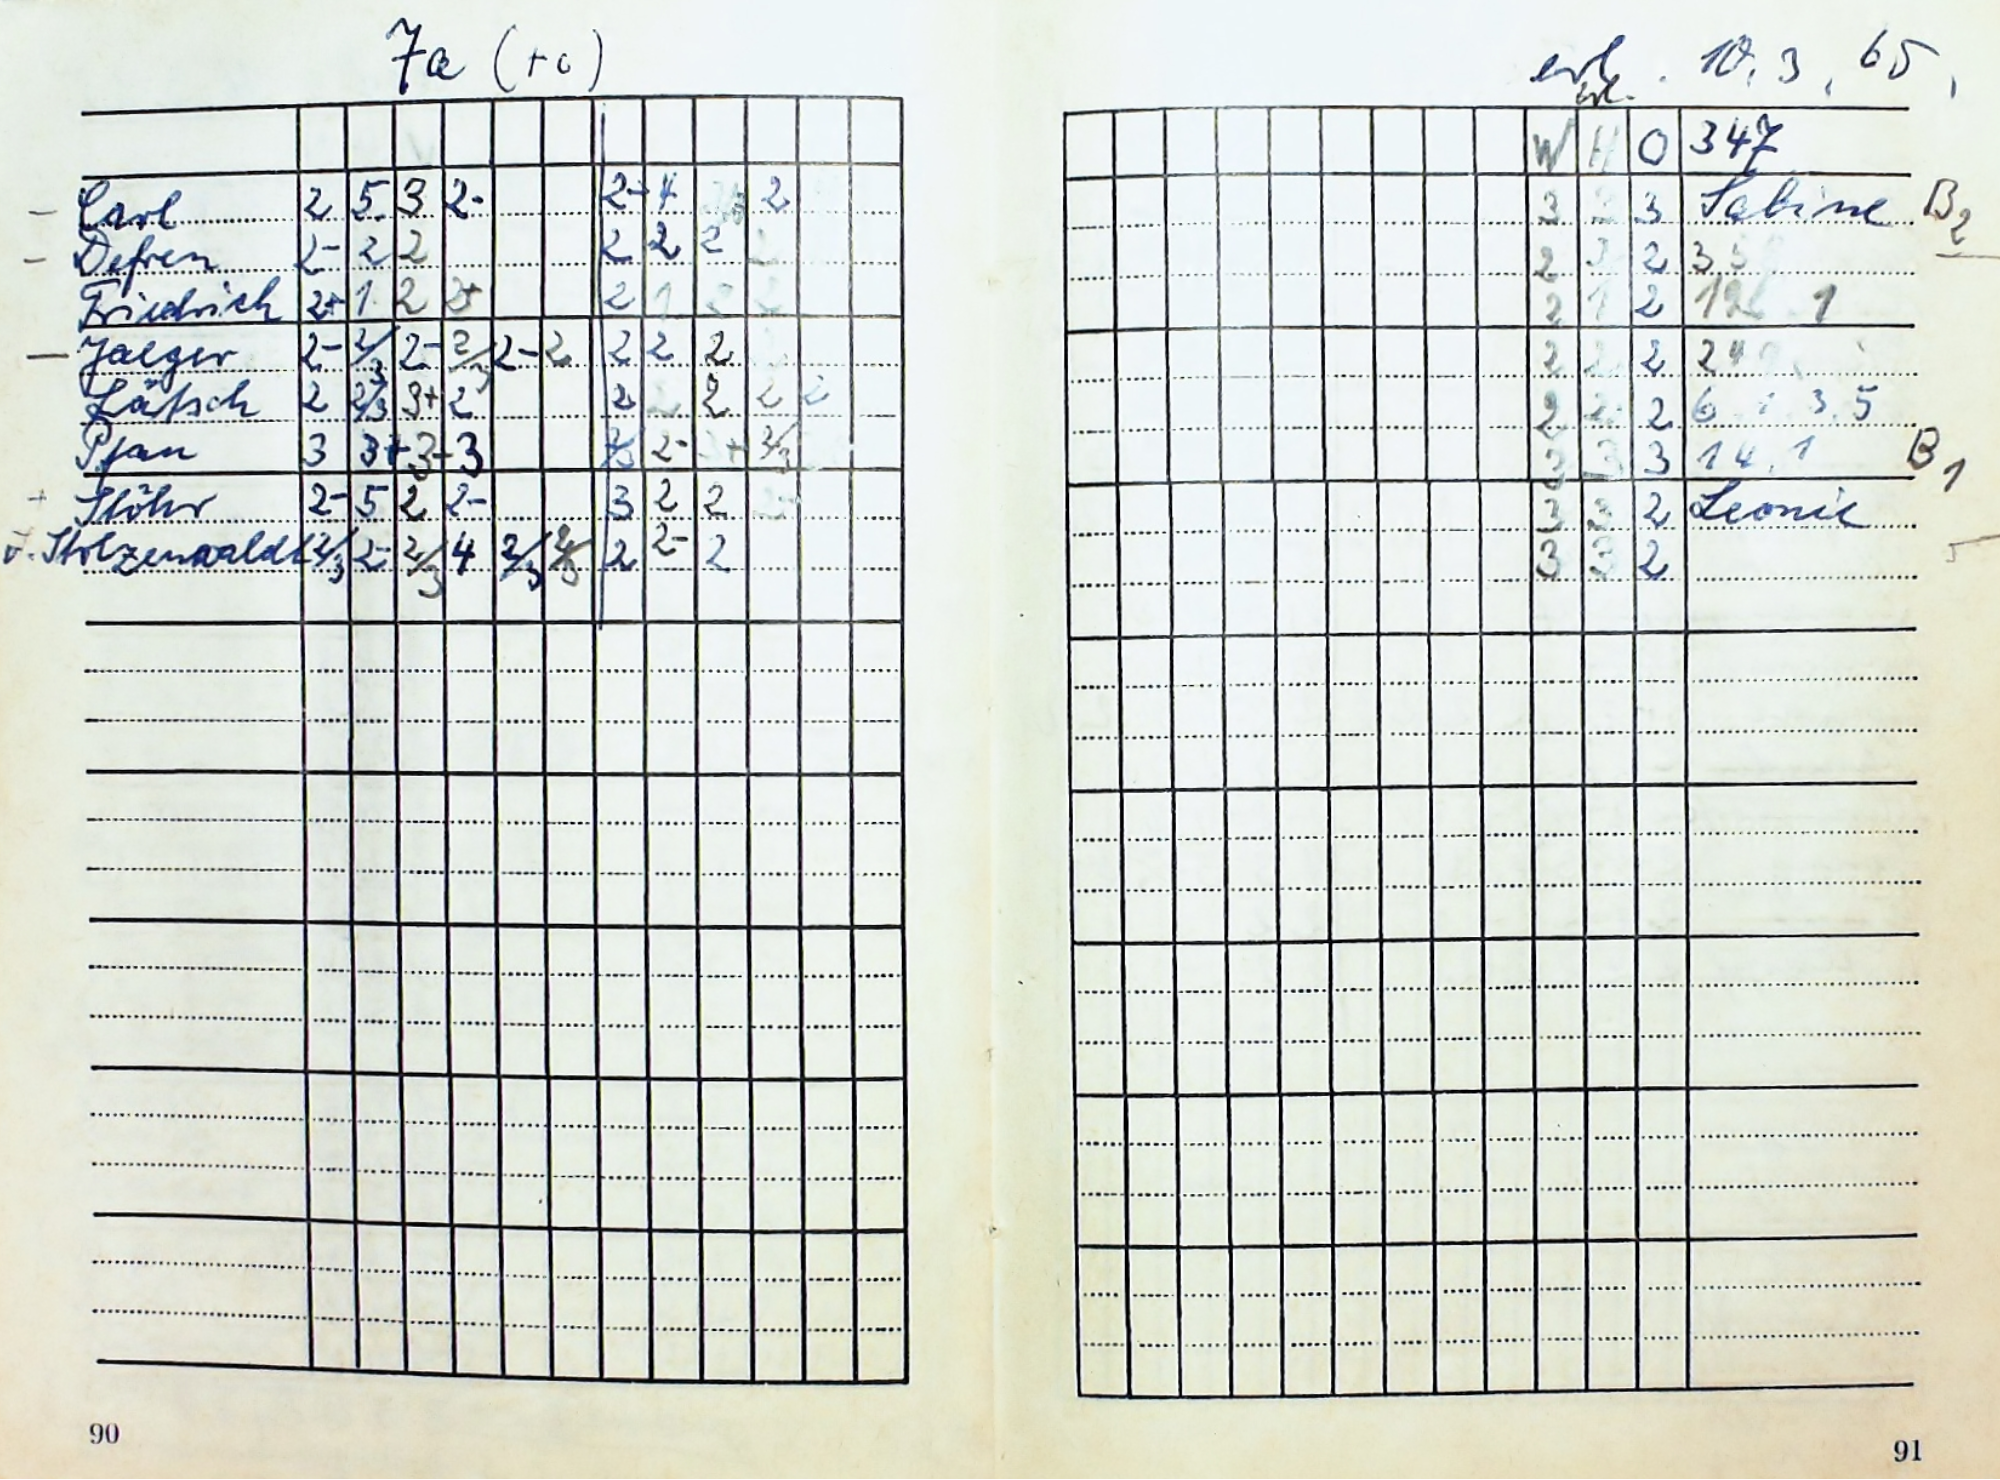 7a (+c)
erl. 10.3.65.
erl.
W H O 347
– Carl 2 5 3 2- 2- 4 2 3 3 Sabine B2
– Defren 2- 2 2 2 2 2 2 3 2 3
Friedrich 2+ 1 2 2+ 2 1 2 2 2 1 2 1
– Jaeger 2- 2/3 2- 2/3 2- 2 2 2 2 2 2 2 24
Lätsch 2 2/3 3+ 2 2 2 2 2 2 2 2 2 6 3.5
Pfau 3 3+ 3- 3 2/3 2- 3+ 2/3 3 3 3 14.1 B1
+ Stöhr 2- 5 2 2- 3 2 2 2- 3 3 2 Leonie
v. Stolzenwaldt 2/3 2- 2/3 4 2/3 2/3 2 2- 2 3 3 2
90
91